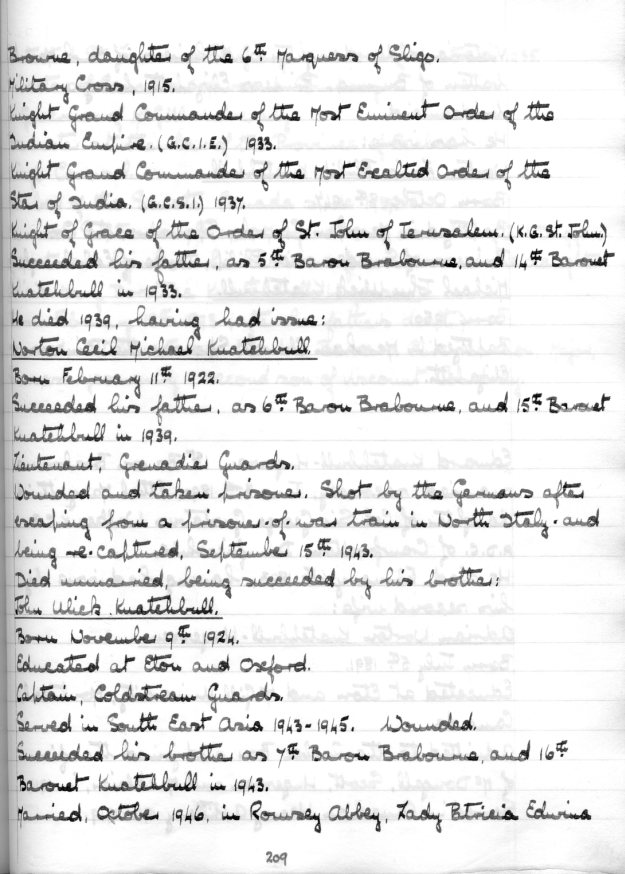 Browne, daughter of the 6th Marquess of Sligo.
Military Cross, 1915.
Knight Grand Commander of the Most Eminent Order of the
Indian Empire. (G.C.I.E.) 1933.
Knight Grand Commander of the Most Exalted Order of the
Star of India. (G.C.S.I.) 1937.
Knight of Grace of the Order of St. John of Jerusalem. (K.G. St. John.)
Succeeded his father, as 5th Baron Brabourne, and 14th Baronet
Knatchbull in 1933.
He died 1939, having had issue:
Norton Cecil Michael Knatchbull.
Born February 11th 1922.
Succeeded his father, as 6th Baron Brabourne, and 15th Baronet
Knatchbull in 1939.
Lieutenant, Grenadier Guards.
Wounded and taken prisoner. Shot by the Germans after
escaping from a prisoner-of-war train in North Italy - and
being re-captured, September 15th 1943.
Died unmarried, being succeeded by his brother:
John Ulick Knatchbull.
Born November 9th 1924.
Educated at Eton and Oxford.
Captain, Coldstream Guards.
Served in South East Asia 1943-1945. Wounded.
Succeeded his brother as 7th Baron Brabourne, and 16th
Baronet Knatchbull in 1943.
Married, October 1946, in Romsey Abbey, Lady Patricia Edwina
209